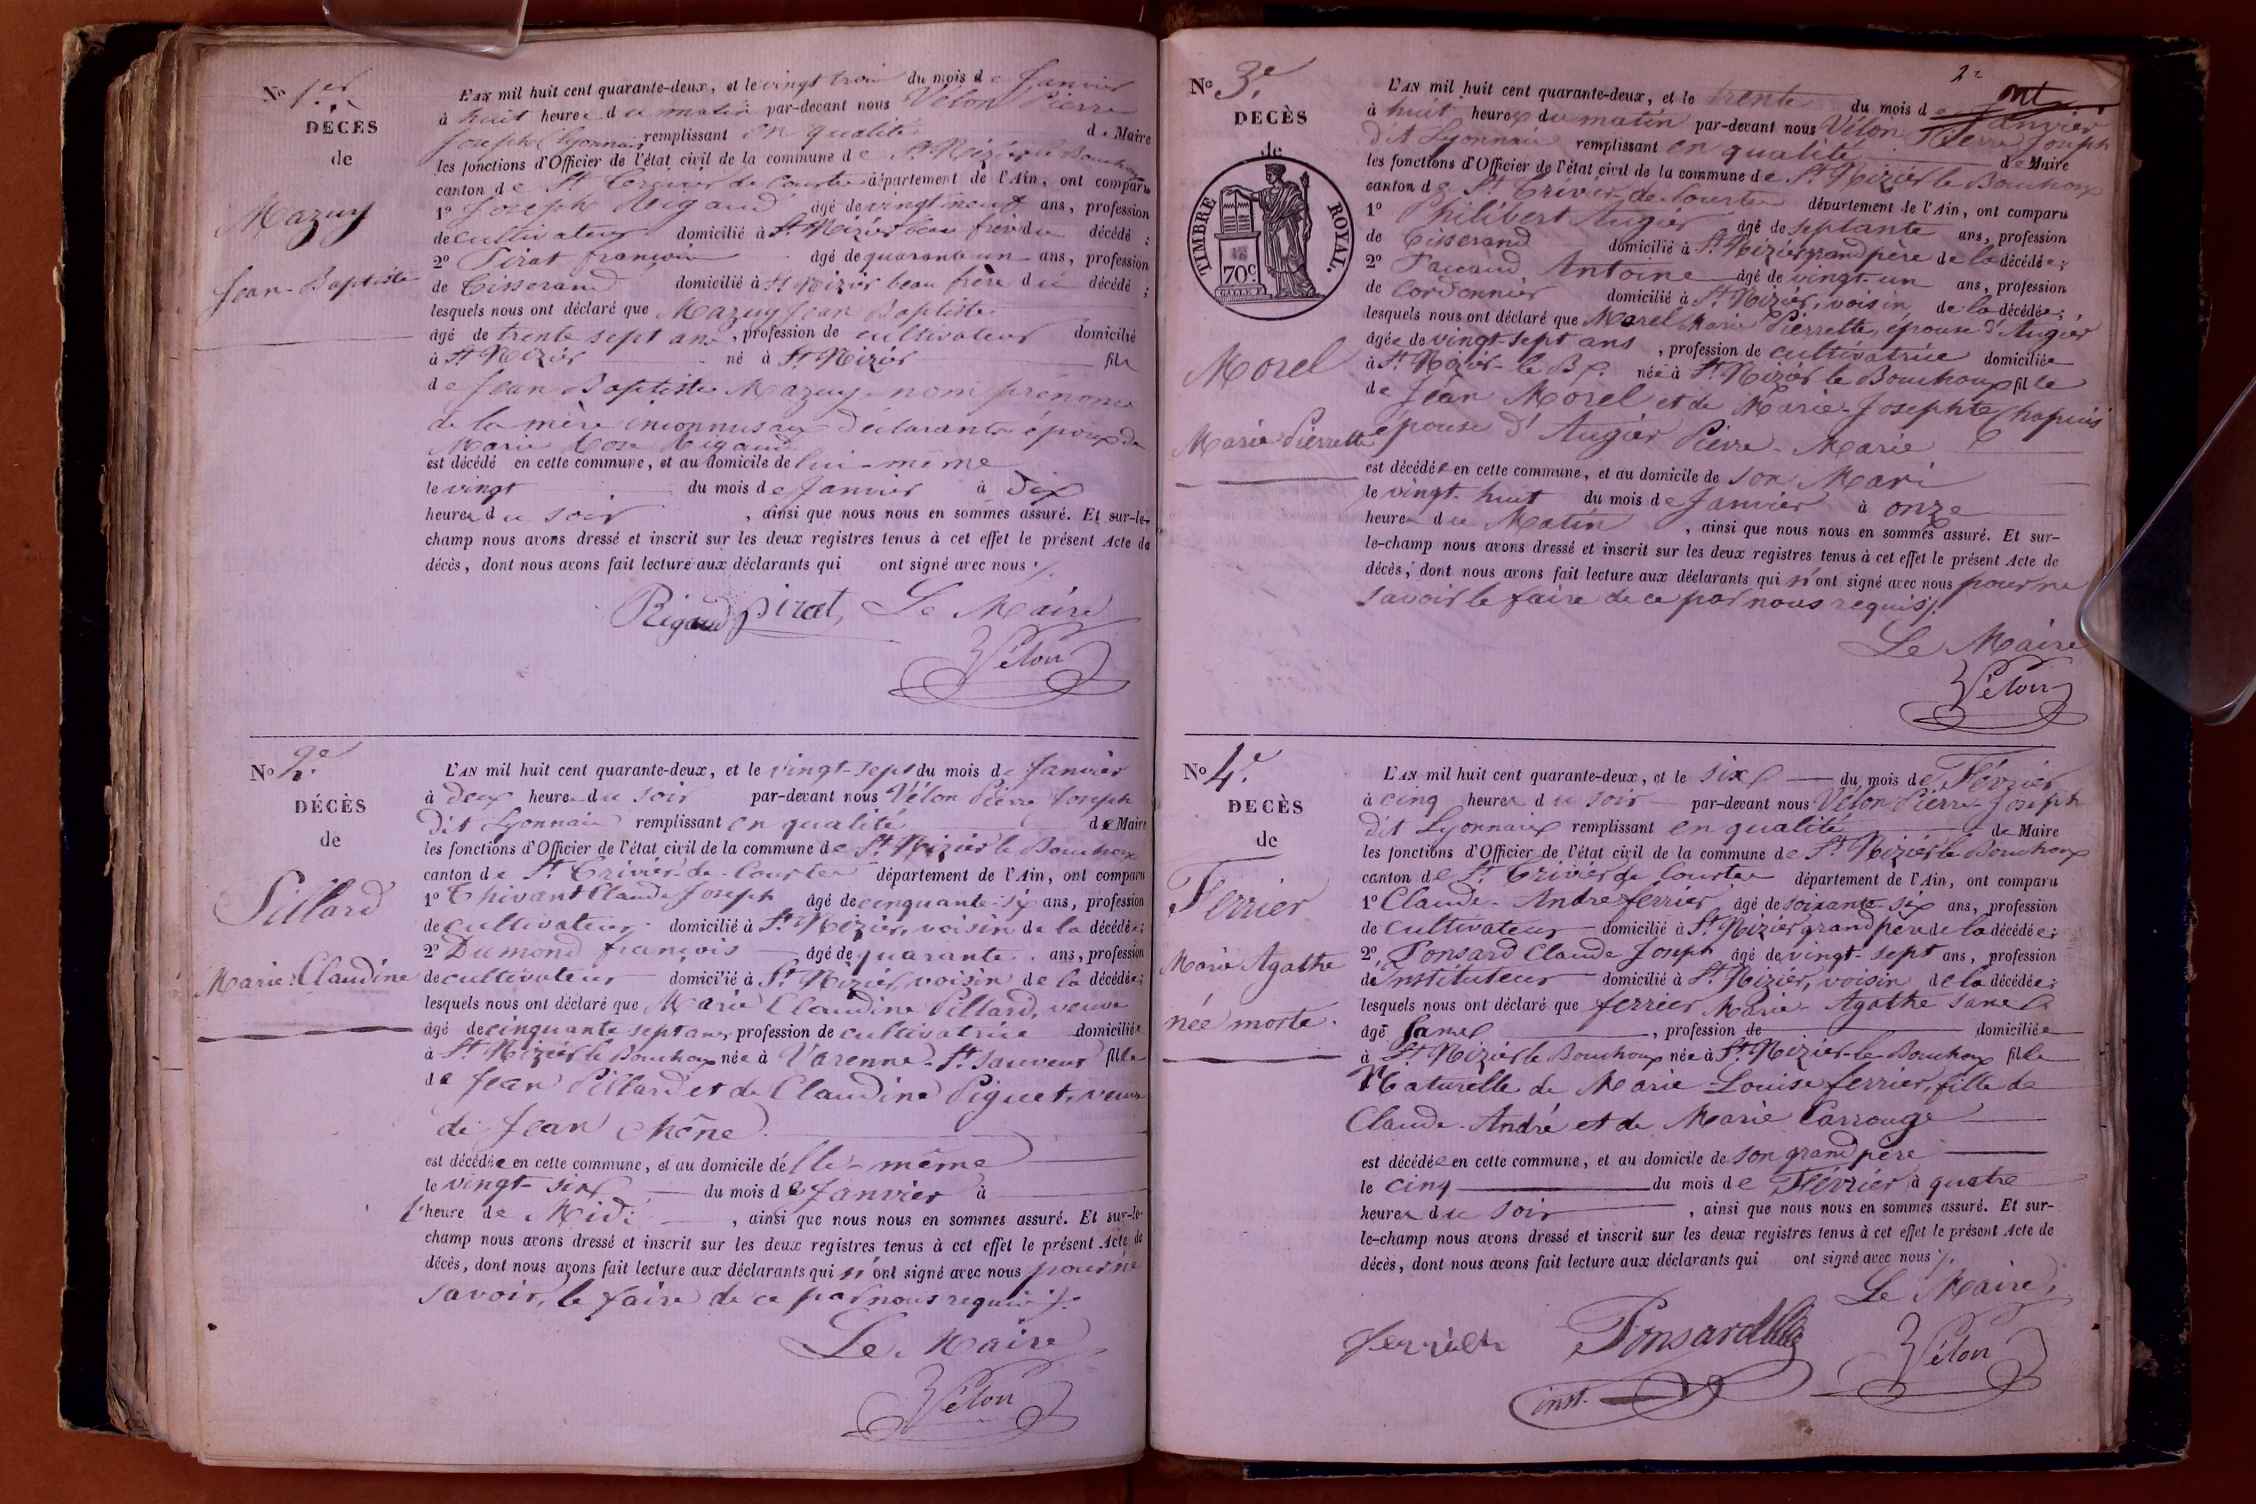 No 1.er
DÉCÈS
de
Mazuy
Jean-Baptiste
L'AN mil huit cent quarante-deux, et le vingt trois du mois de Janvier
à huit heures du matin par-devant nous Vélon Pierre
Joseph Lyonnais remplissant en qualité de Maire
les fonctions d'Officier de l'état civil de la commune de St Nizier le Bouchoux
canton de St Trivier de Courtes département de l'Ain, ont comparu
1o Joseph Rigaud âgé de vingt neuf ans, profession
de cultivateur domicilié à St Nizier beau frère du décédé ;
2o Pirat françois âgé de quarante un ans, profession
de Tisserand domicilié à St Nizier beau frère du décédé ;
lesquels nous ont déclaré que Mazuy Jean Baptiste
âgé de trente sept ans, profession de cultivateur domicilié
à St Nizier né à St Nizier fils
de Jean Baptiste Mazuy nom prenoms
de la mère inconnus aux déclarants époux de
Marie Rose Rigaud
est décédé en cette commune, et au domicile de lui-même
le vingt du mois de Janvier à dix
heures du soir, ainsi que nous nous en sommes assuré. Et sur-le-
champ nous avons dressé et inscrit sur les deux registres tenus à cet effet le présent Acte de
décès, dont nous avons fait lecture aux déclarants qui ont signé avec nous ./.
Rigaud pirat, Le Maire
Vélon
No 2.e
DÉCÈS
de
Pillard
Marie-Claudine
L'AN mil huit cent quarante-deux, et le vingt-sept du mois de Janvier
à deux heures du soir par-devant nous Vélon Pierre Joseph
dit Lyonnais remplissant en qualité de Maire
les fonctions d'Officier de l'état civil de la commune de St Nizier le Bouchoux
canton de St Trivier-de-Courtes département de l'Ain, ont comparu
1o Thivant Claude Joseph âgé de cinquante-six ans, profession
de cultivateur domicilié à St Nizier, voisin de la décédée ;
2o Dumond françois âgé de quarante ans, profession
de cultivateur domicilié à St Nizier, voisin de la décédée ;
lesquels nous ont déclaré que Marie Claudine Pillard, veuve
âgé de cinquante sept ans, profession de cultivatrice domiciliée
à St Nizier le Bouchoux née à Varenne-St Sauveur fille
de Jean Pillard et de Claudine Piguet, veuve
de Jean Chêne
est décédée en cette commune, et au domicile d'elle-même
le vingt-six du mois de Janvier à
l'heure de Midi, ainsi que nous nous en sommes assuré. Et sur-le-
champ nous avons dressé et inscrit sur les deux registres tenus à cet effet le présent Acte de
décès, dont nous avons fait lecture aux déclarants qui n'ont signé avec nous pour ne
savoir le faire de ce par nous requis ./.
Le Maire
Vélon
2e
No 3.e
DECÈS
de
TIMBRE ROYAL.
70c
Morel
Marie Pierrette
L'AN mil huit cent quarante-deux, et le trente du mois de Janvier
à huit heures du matin par-devant nous Vélon Pierre Joseph
dit Lyonnais remplissant en qualité de Maire
les fonctions d'Officier de l'état civil de la commune de St Nizier le Bouchoux
canton de St Trivier-de-Courtes département de l'Ain, ont comparu
1o Philibert Augier âgé de septante ans, profession
de Tisserand domicilié à St Nizier grand père de la décédée ;
2o Antoine âgé de vingt-un ans, profession
de Cordonnier domicilié à St Nizier, voisin de la décédée ;
lesquels nous ont déclaré que Morel Marie Pierrette, épouse d'Augier
âgée de vingt-sept ans, profession de cultivatrice domiciliée
à St Nizier-le-Bx. née à St Nizier le Bouchoux fille
de Jean Morel et de Marie-Josephte Chapuis
épouse d'Augier Pierre-Marie
est décédée en cette commune, et au domicile de son Mari
le vingt-huit du mois de Janvier à onze
heures du Matin, ainsi que nous nous en sommes assuré. Et sur-
le-champ nous avons dressé et inscrit sur les deux registres tenus à cet effet le présent Acte de
décès, dont nous avons fait lecture aux déclarants qui n'ont signé avec nous pour ne
savoir le faire de ce par nous requis ./.
Le Maire
Vélon
No 4.e
DECÈS
de
Ferrier
Marie Agathe
née morte.
L'AN mil huit cent quarante-deux, et le six du mois de Février
à cinq heures du soir par-devant nous Vélon Pierre Joseph
dit Lyonnais remplissant en qualité de Maire
les fonctions d'Officier de l'état civil de la commune de St Nizier le Bouchoux
canton de St Trivier de Courtes département de l'Ain, ont comparu
1o Claude-André ferrier âgé de soixante-six ans, profession
de cultivateur domicilié à St Nizier grand père de la décédée ;
2o Ponsard Claude Joseph âgé de vingt-sept ans, profession
de Instituteur domicilié à St Nizier, voisin de la décédée ;
lesquels nous ont déclaré que ferrier Marie-Agathe sans
âgé sans, profession de domiciliée
à St Nizier le Bouchoux née à St Nizier-le-Bouchoux fille
Naturelle de Marie-Louise ferrier, fille de
Claude-André et de Marie Carrouge
est décédée en cette commune, et au domicile de son grand père
le cinq du mois de Février à quatre
heures du soir, ainsi que nous nous en sommes assuré. Et sur-
le-champ nous avons dressé et inscrit sur les deux registres tenus à cet effet le présent Acte de
décès, dont nous avons fait lecture aux déclarants qui ont signé avec nous ./.
Le Maire,
Ponsard
inst.
Vélon